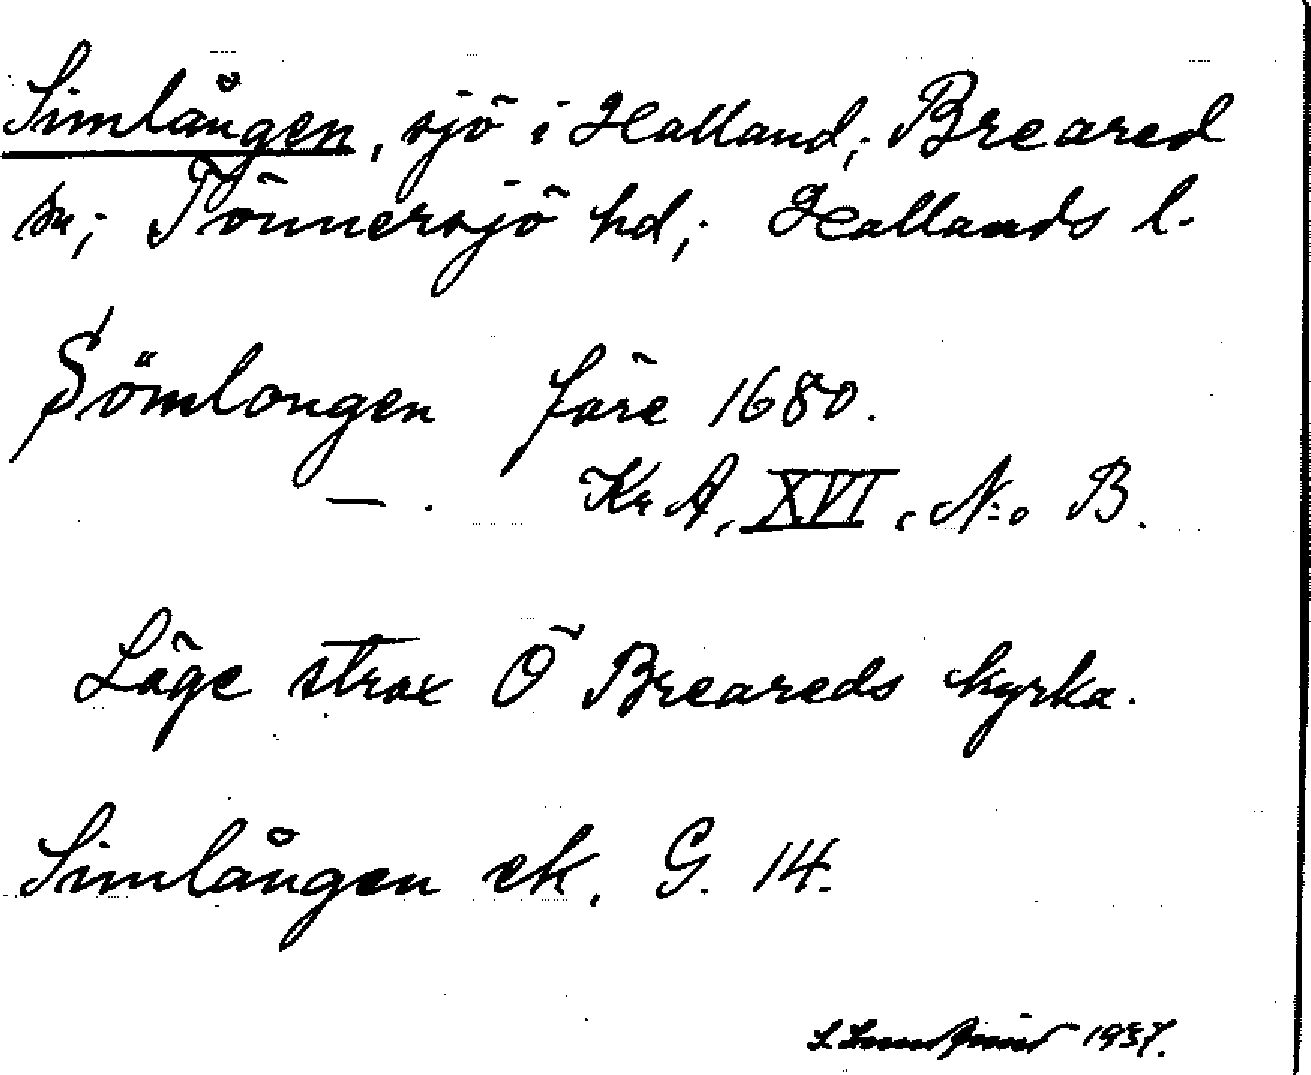 Simlången, sjö i Halland; Breared
sn; Tönnersjö hd; Hallands l.
Sömlongen före 1680.
—. KrA, XVI, N:o B.
Läge strax Ö Breareds kyrka.
Simlången ek. G. 14.
1937.